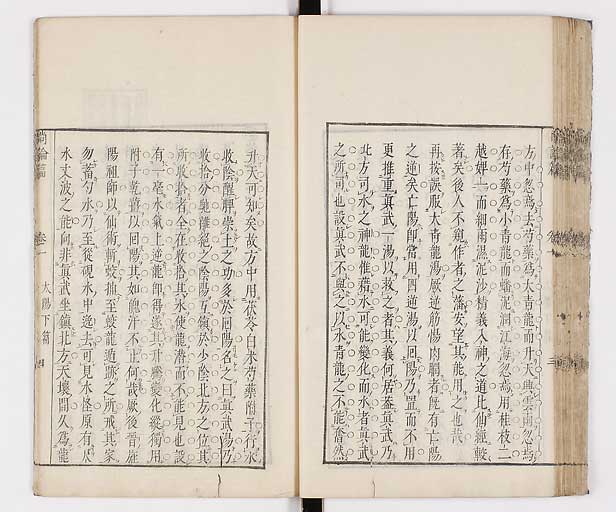 方中忽爲去芍藥爲大青龍而升天興雲雨忽爲
存芍藥爲小青龍而蟠泥潤江海忽爲用桂枝二
越婢一而細雨濕泥沙精義入神之道比仙經較
著矣後人不窺作者之藩安望其能用之也哉
再按誤服大青龍湯厥逆筋惕肉瞤者既有亡陽
之逆矣亡陽即當用四逆湯以回陽乃置而不用
更推重眞武一湯以救之者其義何居葢眞武乃
北方司水之神龍惟藉水可能變化而水者眞武
之所司也設眞武不與之以水青龍之不能奮然
升天可知矣故方中用茯苓白朮芍藥附子行水
收陰醒脾崇土之功多於回陽名之曰眞武湯乃
收拾分馳離絕之陰陽互鎮於少陰北方之位其
所收拾者全在收拾其水使龍潛而不能見也設
有一毫水氣上逆龍即得遂其升騰變化縱獨用
附子乾薑以回陽其如魄汗不止何哉厥後晉旌
陽祖師以仙術斬蛟捕至蛟龍遁跡之所戒其家
勿蓄勺水乃至從硯水中逸去可見水怪原有尺
水丈波之能向非眞武坐鎮北方天壤間久爲龍
尚論篇 卷一 太陽下篇 四